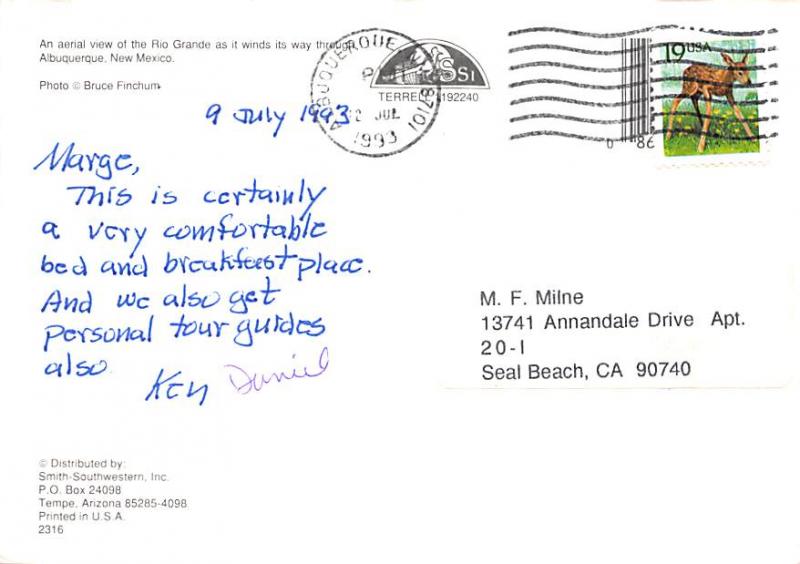 An aerial view of the Rio Grande as it winds its way through
Albuquerque, New Mexico.
Photo © Bruce Finchum
ALBUQUERQUE
87101
12 JUL
1993
SSI
TERRELL 192240
19 USA
0 86
9 July 1993
Marge,
This is certainly
a very comfortable
bed and breakfast place.
And we also get
personal tour guides
also
Ken Daniel
M. F. Milne
13741 Annandale Drive Apt.
20-I
Seal Beach, CA 90740
© Distributed by:
Smith-Southwestern, Inc.
P.O. Box 24098
Tempe, Arizona 85285-4098
Printed in U.S.A.
2316